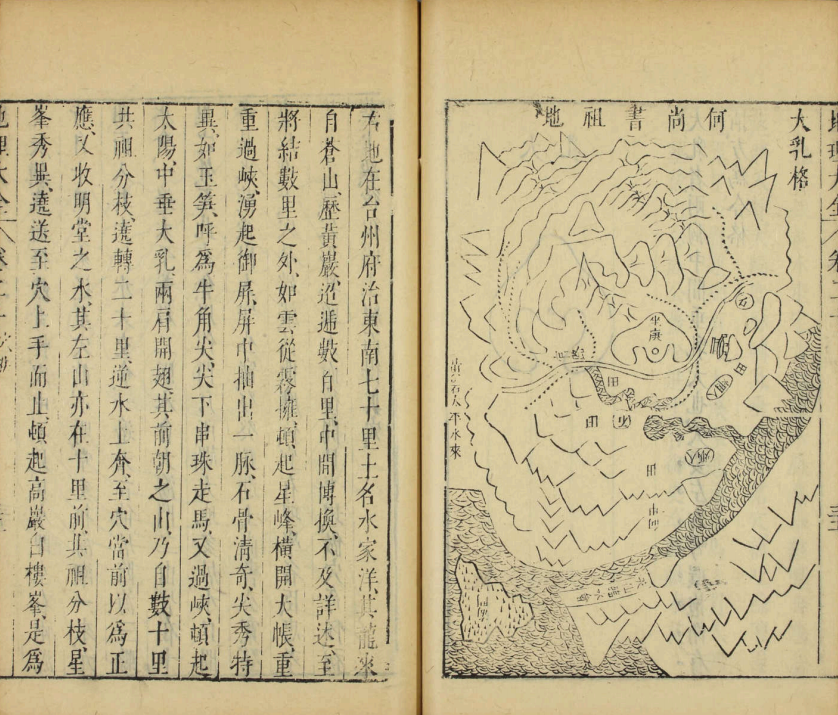 大乳格
何尚書祖地
田
田
田
田
黃岩太平水來
右地在台州府治東南七十里土名水家洋其龍來
自蒼山歷黃巖迢遞數百里中間博換不及詳述至
將結數里之外如雲從霧擁頓起星峰橫開大帳重
重過峽湧起御屏屏中抽出一脉石骨清奇尖秀特
異如玉笋呼爲牛角尖尖下串珠走馬又過峽頓起
太陽中垂大乳兩肩開翅其前朝之山乃自數十里
共祖分枝遶轉二十里逆水上奔至穴當前以爲正
應又收明堂之水其左山亦在十里前共祖分枝星
峯秀異遶送至穴上手而止頓起高巖白樓峯是爲